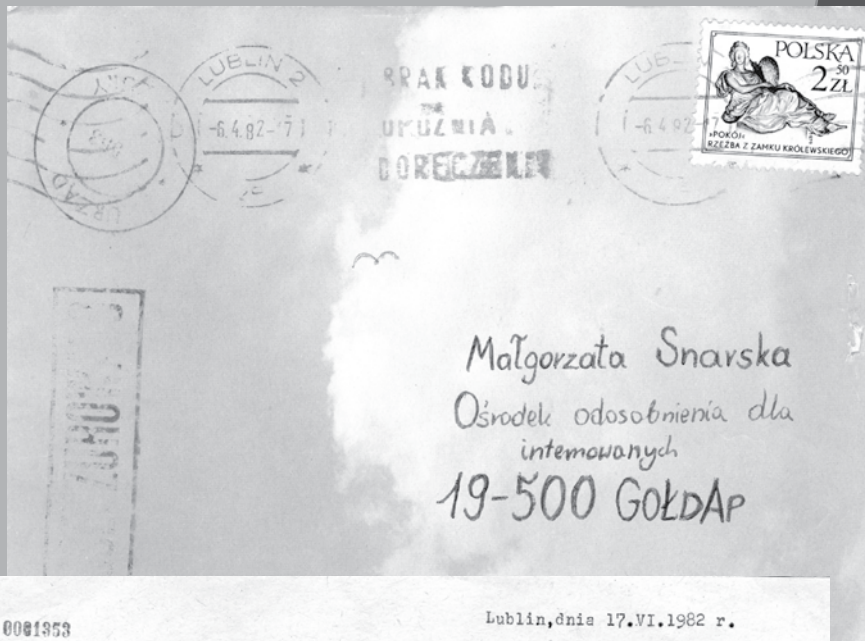 LUBLIN 2
-6.4.82-17
BRAK KODU
DORĘCZENIE
-6.4.82-17
POLSKA
2 50 ZŁ
»POKÓJ«
RZEŹBA Z ZAMKU KRÓLEWSKIEGO
URZĄD
Małgorzata Snarska
Ośrodek odosobnienia dla
internowanych
19-500 GOŁDAP
0081353
Lublin,dnia 17.VI.1982 r.